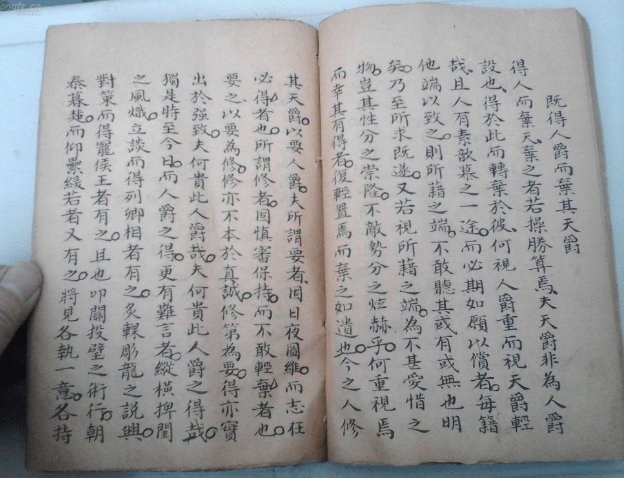 既得人爵而棄其天爵
得人而棄天棄之者若操勝算焉夫天爵非為人爵
設也得於此而轉棄於彼何視人爵重而視天爵輕
哉且人有素歆羨之一途而必期如願以償者每藉
他端以致之則所藉之端不敢聽其或有或無也明
矣乃至所求既遂又若視所藉之端為不甚愛惜之
物豈其性分之崇隆不敵勢分之炫赫乎何重視焉
而幸其有得者復輕置焉而棄之如遺也今之人修
其天爵以要人爵夫所謂要者因日夜圖維而志在
必得者也所謂修者因慎審保持而不敢輕棄者也
要之以要為修修亦不本於真誠修第為要得亦實
出於強致夫何貴此人爵哉夫何貴此人爵之得哉
獨是時至今日而人爵之得更有難言者縱橫捭闔
之風熾立談而得列卿相者有之炙輠彫龍之說興
對策而得寵侯王者有之且也叩關投璧之術行朝
秦暮楚而仰纍綬若者又有之將見各執一意各持